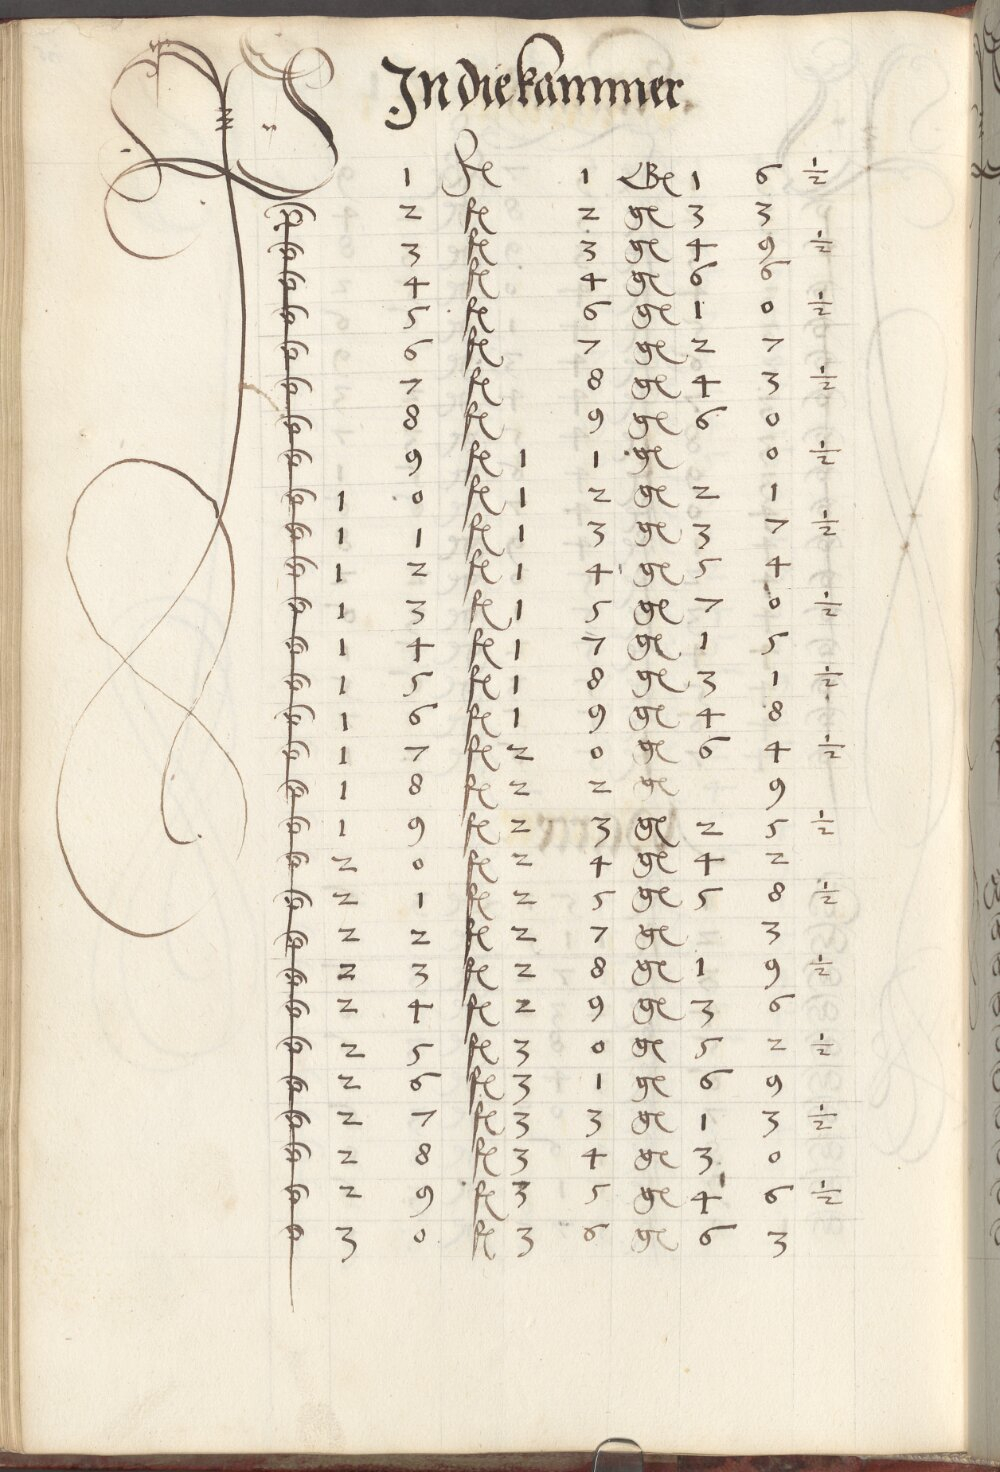 In die kammer
1 fl 1 Ge 1 6 ½
2 fl 2 ge 3 3
3 fl 3 ge 4 9 ½
4 fl 4 ge 6 6
5 fl 6 ge 1 0 ½
6 fl 7 ge 2 7
7 fl 8 ge 4 3 ½
8 fl 9 ge 6 0
9 fl 1 1 ge 0 ½
1 0 fl 1 2 ge 2 1
1 1 fl 1 3 ge 3 7 ½
1 2 fl 1 4 ge 5 4
1 3 fl 1 5 ge 7 0 ½
1 4 fl 1 7 ge 1 5
1 5 fl 1 8 ge 3 1 ½
1 6 fl 1 9 ge 4 8
1 7 fl 2 0 ge 6 4 ½
1 8 fl 2 2 ge 9
1 9 fl 2 3 ge 2 5 ½
2 0 fl 2 4 ge 4 2
2 1 fl 2 5 ge 5 8 ½
2 2 fl 2 7 ge 3
2 3 fl 2 8 ge 1 9 ½
2 4 fl 2 9 ge 3 6
2 5 fl 3 0 ge 5 2 ½
2 6 fl 3 1 ge 6 9
2 7 fl 3 3 ge 1 3 ½
2 8 fl 3 4 ge 3 0
2 9 fl 3 5 ge 4 6 ½
3 0 fl 3 6 ge 6 3